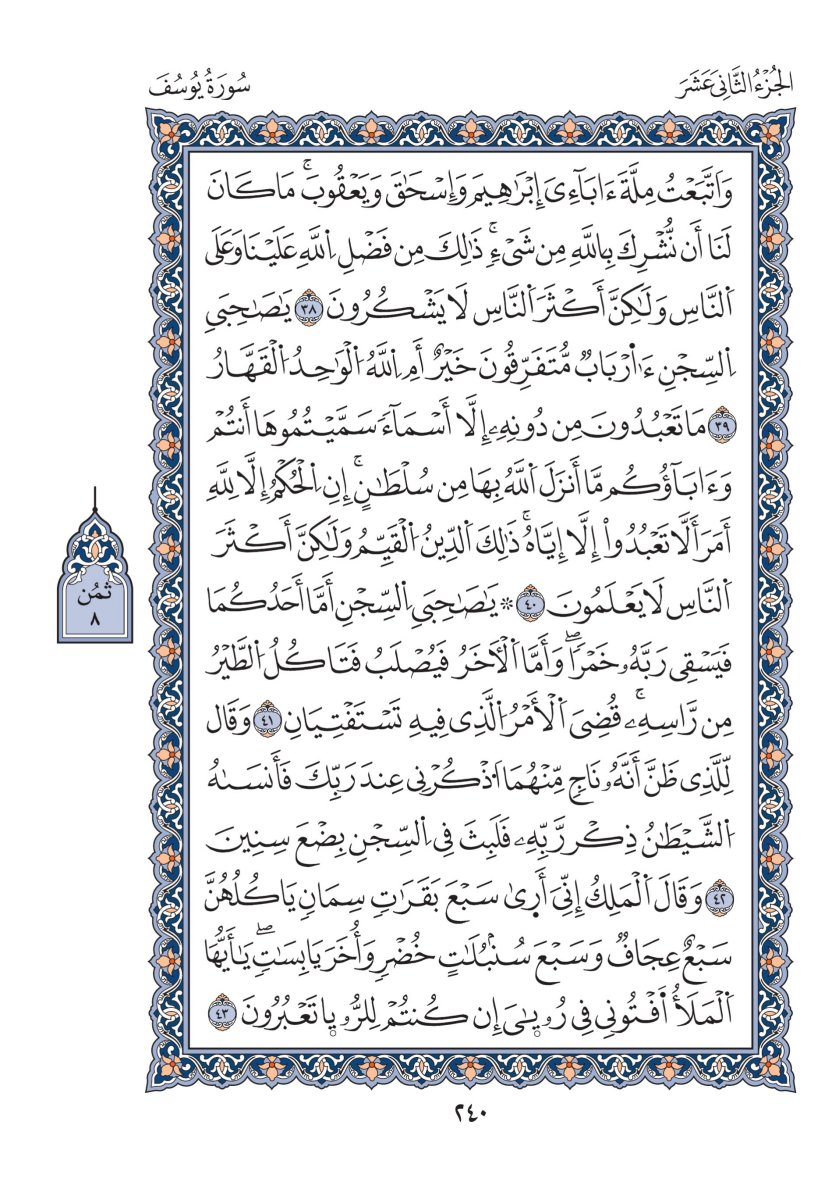 الجُزْءُ الثَّانِيَ عَشَرَ
سُورَةُ يُوسُفَ
وَاَتَّبَعْتُ مِلَّةَ ءَابَآءِىَ إِبْرَٰهِيمَ وَإِسْحَٰقَ وَيَعْقُوبَۚ مَا كَانَ
لَنَا أَن نُّشْرِكَ بِاللَّهِ مِن شَىْءٍۚ ذَٰلِكَ مِن فَضْلِ اِ۬للَّهِ عَلَيْنَا وَعَلَى
اَ۬لنَّاسِ وَلَٰكِنَّ أَكْثَرَ اَ۬لنَّاسِ لَا يَشْكُرُونَ ٣٨ يَٰصَٰحِبَيِ
اِ۬لسِّجْنِ ءَا۬رْبَابٌ مُّتَفَرِّقُونَ خَيْرٌ أَمِ اِ۬للَّهُ اُ۬لْوَٰحِدُ اُ۬لْقَهَّارُ
٣٩ مَا تَعْبُدُونَ مِن دُونِهِۦ إِلَّا أَسْمَآءً سَمَّيْتُمُوهَا أَنتُمْ
وَءَابَآؤُكُم مَّا أَنزَلَ اَ۬للَّهُ بِهَا مِن سُلْطَٰنٍۚ إِنِ اِ۬لْحُكْمُ إِلَّا لِلهِ
أَمَرَ أَلَّا تَعْبُدُواْ إِلَّا إِيَّاهُۚ ذَٰلِكَ اَ۬لدِّينُ اُ۬لْقَيِّمُ وَلَٰكِنَّ أَكْثَرَ
اَ۬لنَّاسِ لَا يَعْلَمُونَ ٤٠ ۞ يَٰصَٰحِبَيِ اِ۬لسِّجْنِ أَمَّا أَحَدُكُمَا
فَيَسْقِى رَبَّهُۥ خَمْرًاۖ وَأَمَّا اَ۬لْأٓخَرُ فَيُصْلَبُ فَتَاكُلُ اُ۬لطَّيْرُ
مِن رَّاسِهِۦۚ قُضِىَ اَ۬لْأَمْرُ اُ۬لَّذِى فِيهِ تَسْتَفْتِيَانِ ٤١ وَقَالَ
لِلَّذِى ظَنَّ أَنَّهُۥ نَاجٍ مِّنْهُمَا اَ۟ذْكُرْنِى عِندَ رَبِّكَ فَأَنسَىٰهُ
اُ۬لشَّيْطَٰنُ ذِكْر رَّبِّهِۦ فَلَبِثَ فِى اِ۬لسِّجْنِ بِضْعَ سِنِينَ
٤٢ وَقَالَ اَ۬لْمَلِكُ إِنِّىَ أَر۪ىٰ سَبْعَ بَقَرَٰتٍ سِمَانٍ يَاكُلُهُنَّ
سَبْعٌ عِجَافٌ وَسَبْعَ سُنۢبُلَٰتٍ خُضْرٍ وَأُخَرَ يَابِسَٰتٍۖ يَٰأَيُّهَا
اَ۬لْمَلَأُ اَ۬فْتُونِى فِى رُويَٰ۪ىَ إِن كُنتُمْ لِلرُّوي۪ا تَعْبُرُونَ ٤٣
ثُمُن
٨
٢٤٠